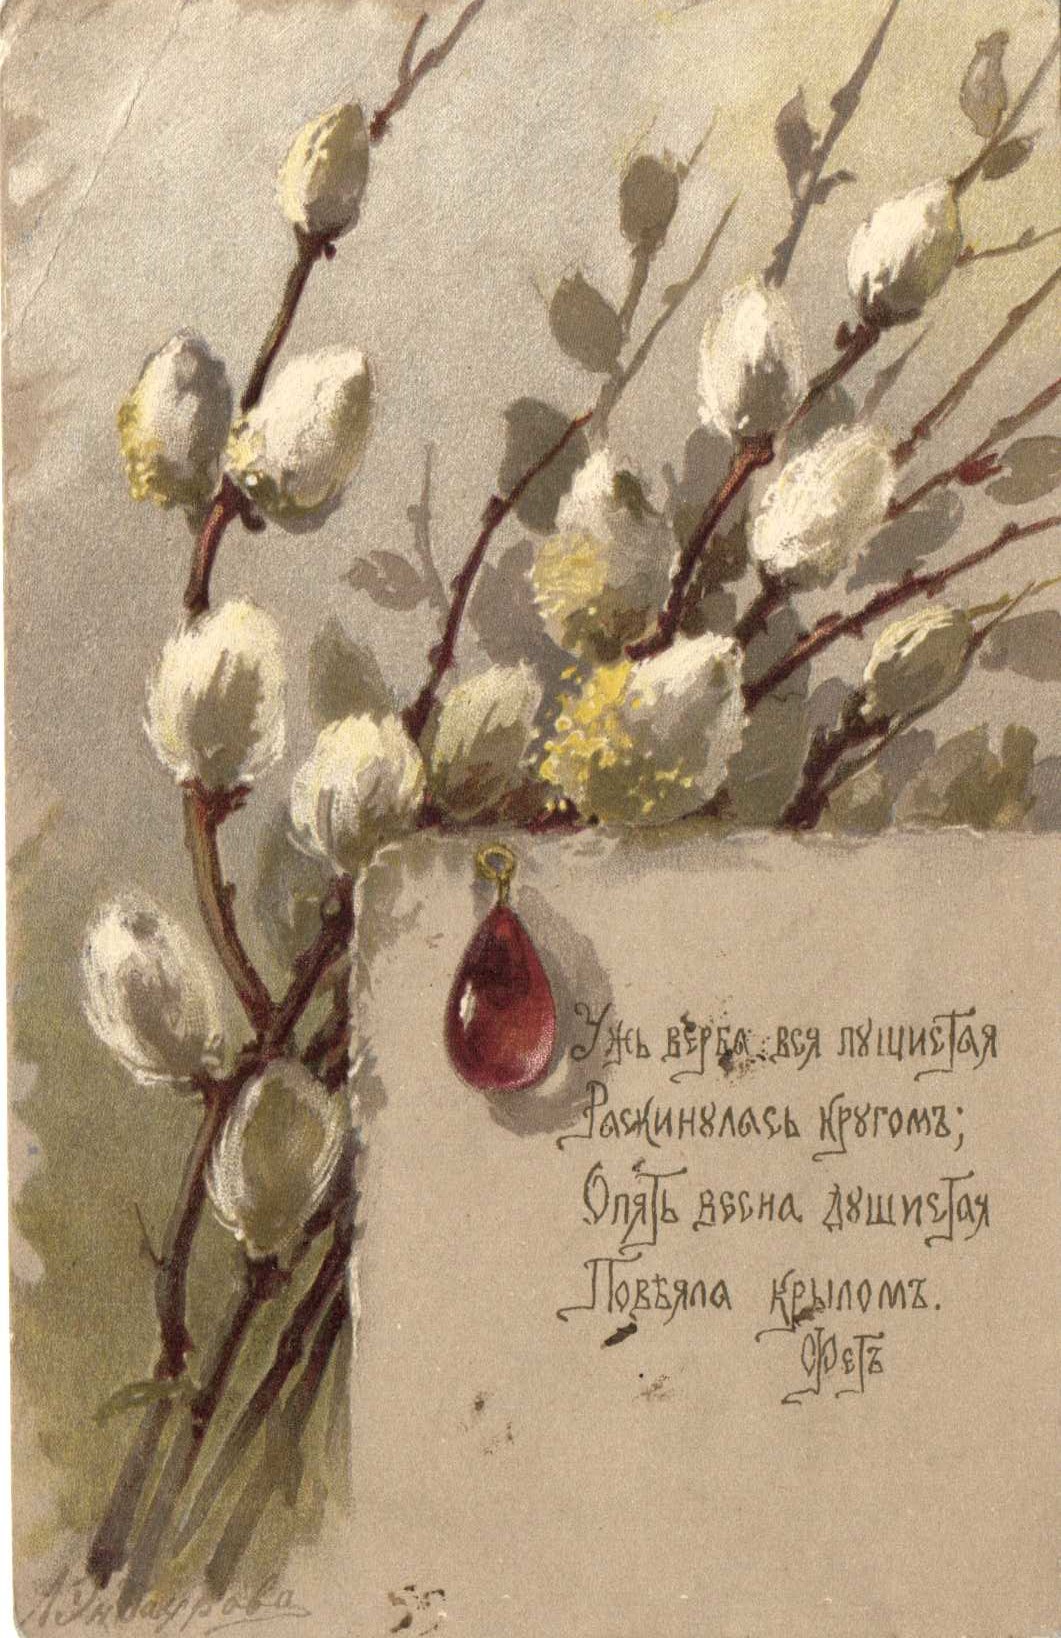 Ужь верба вся пушистая
Раскинулась кругомъ;
Опять весна душистая
Повѣяла крыломъ.
Фетъ
А Эндаурова